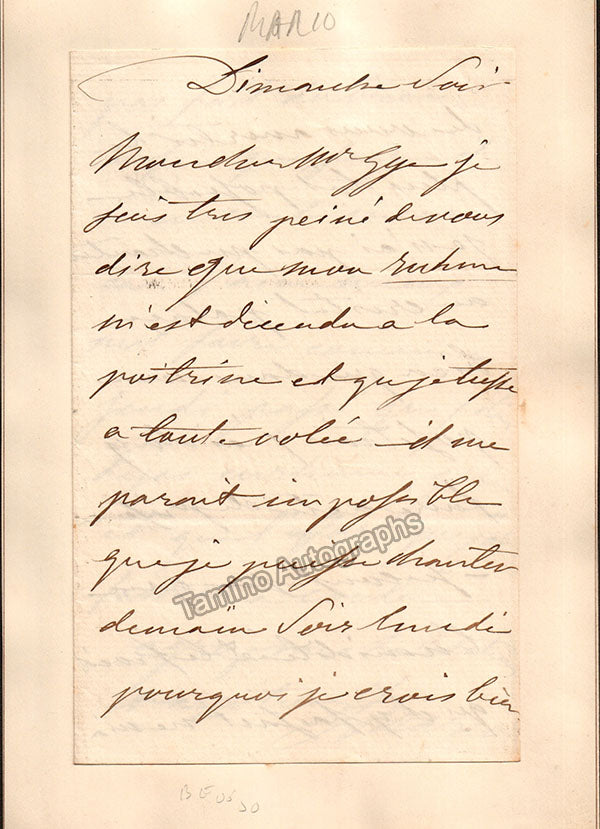 MARIO
Dimanche Soir
Mon cher Mr Gye je
suis tres peiné de vous
dire que mon ruhme
m'est discendu a la
poitrine et que je tusse
a toute volée - il me
parait impossible
que je puisse chanter
Tamino Autographs
demain Soir lundi
pourquoi je crois bien